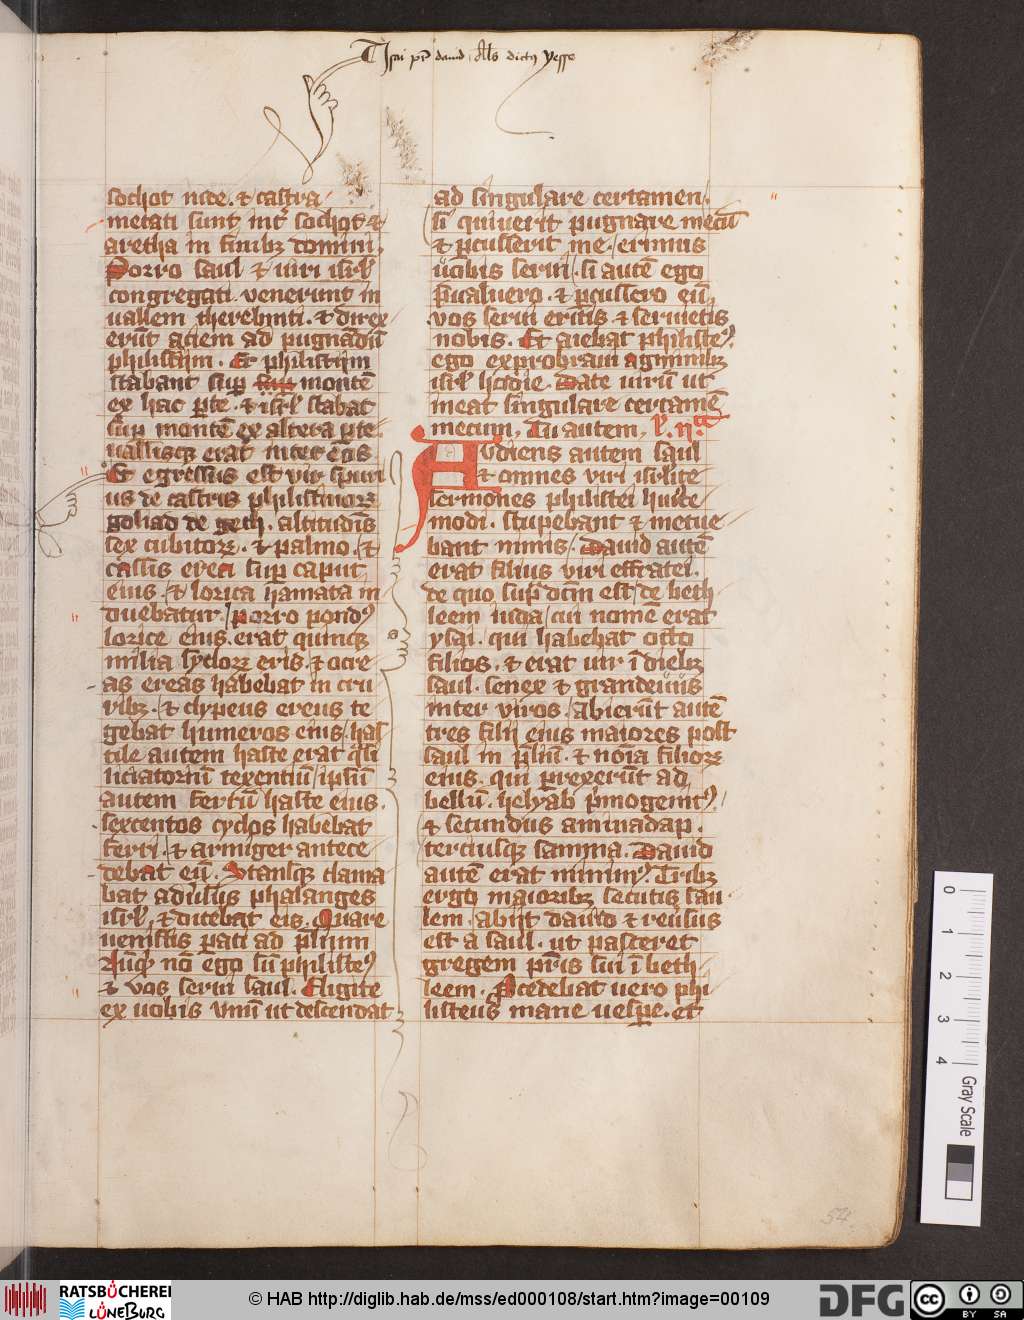 Isai pr̄ dauid Al's dictꝰ yesse
sochot iude. ⁊ castra
metati sunt int̄ sochot ⁊
aretha in finibꝫ domim.
Porro saul ⁊ uiri isrl̄
congregati. venerunt in
uallem therebinti. ⁊ direx
erūt aciem ad pugnādū
philistijm. Et philistijm
stabant suꝑ montē
ex hac ꝑte. ⁊ isrl̄ stabat
suꝑ montē ex altera ꝑte.
uallisqꝫ erat inter eos
Et egressus est vir spuri
us de castris philistinorꝝ
goliad de geth. altitudīs
sex cubitorꝝ. ⁊ palmo. ⁊
cassis erea suꝑ caput
eius. ⁊ lorica hamata in
duebatur. porro pondꝰ
lorice eius. erat quinqꝫ
milia syclorꝝ eris. ⁊ ocre
as ereas habebat in cru
ribꝫ. ⁊ clypeus ereus te
gebat humeros eius. has
tile autem haste erat q̄si
liciatoriū texentiū ipsū
autem ferrū haste eius.
sexcentos cyclos habebat
ferri. ⁊ armiger antece
debat eū. Stansqꝫ clama
bat adūsus phalanges
isrl̄. ⁊ dicebat eis. Quare
uenistis parati ad p̄lium
Nūqͥd nō ego sū philisteꝰ
⁊ vos serui saul. Eligite
ex uobis vnū ut descendat
ad singulare certamen.
si quiuerit pugnare mecū
⁊ ꝑcusserit me. erimus
uobis serui. si autē ego
p̄ualuero. ⁊ ꝑcussero eū,
vos serui eritis ⁊ seruietis
nobis. Et aiebat philisteꝰ.
ego exprobraui agminibꝫ
isrl̄ hodie. Date uirū ut
ineat singulare certamē
mecum. Tu autem. l. ija
Audiens autem saul
⁊ omnes viri isrl̄ite
sermones philistei huisce
modi. stupebant ⁊ metue
bant nimis. Dauid autē
erat filius viri effratei.
de quo supͣ dcm̄ est, de beth
leem iuda, cui nomē erat
ysai. qui habebat octo
filios. ⁊ erat uir ī diebꝫ
saul. senex ⁊ grandeuus
inter viros. Abierūt autē
tres filii eius maiores post
saul in p̄liū. ⁊ noīa filiorꝝ
eius. qui ꝑrexerūt ad
bellū. helyab p̄mogenitꝰ,
⁊ secundus aminadap.
terciusqꝫ samma. Dauid
autē erat minimꝰ. Tribꝫ
ergo maioribꝫ secutis sau
lem. abiit dauid ⁊ reūsus
est a saul. ut pasceret
gregem pr̄is sui ī beth
leem. Ꝓcedebat uero phi
listeus mane uespe. et
54
0
1
2
3
4
Gray Scale
RATSBÜCHEREI
LÜNEBURG
© HAB http://diglib.hab.de/mss/ed000108/start.htm?image=00109
DFG
cc
BY
SA